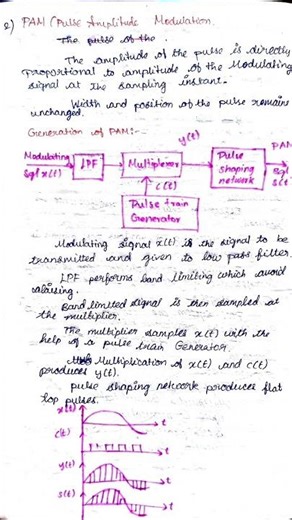 2) PAM (Pulse Amplitude Modulation.
The pulse of the .
The amplitude of the pulse is directly
Proportional to amplitude of the Modulating
signal at the sampling instant.
Width and position of the pulse remains
unchanged.
Generation of PAM:-
Modulating
Sgl x(t)
LPF
Multiplexer
y(t)
Pulse
shaping
network
PAM
Sgl
S(t)
c(t)
Pulse train
Generator
Modulating signal x(t) is the signal to be
transmitted and given to low pass filter.
LPF performs band limiting which avoid
aliasing.
Band limited signal is then sampled at
the multiplier.
The multiplier samples x(t) with the
help of a pulse train Generator.
Multiplication of x(t) and c(t)
produces y(t).
pulse shaping network produces flat
top pulses.
x(t)
t
c(t)
t
y(t)
t
s(t)
t